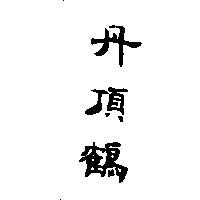 丹頂鶴